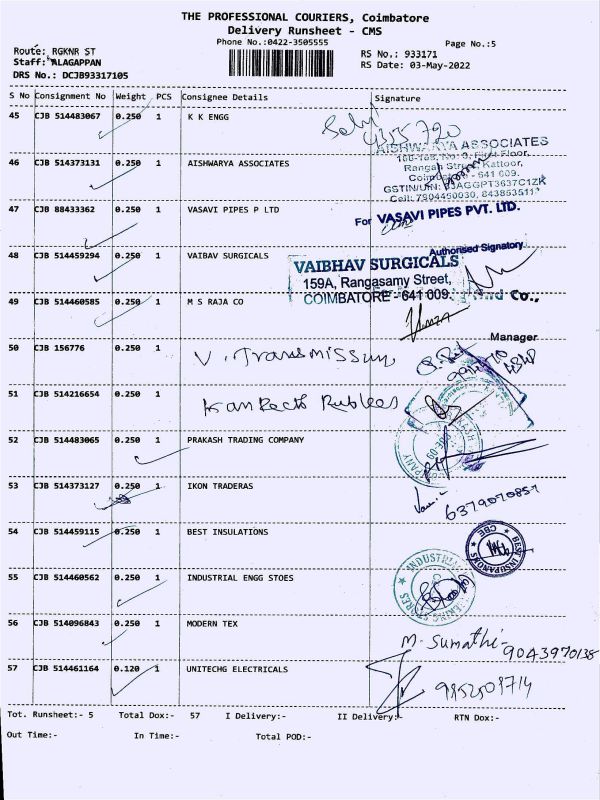 THE PROFESSIONAL COURIERS, Coimbatore
Delivery Runsheet - CMS
Phone No.:0422-3505555
Page No.:5
Route: RGKNR ST
RS No.: 933171
Staff: ALAGAPPAN
RS Date: 03-May-2022
DRS No.: DCJB93317105
S No Consignment No Weight PCS Consignee Details Signature
45 CJB 514483067 0.250 1 K K ENGG
AISHWARYA ASSOCIATES
46 CJB 514373131 0.250 1 AISHWARYA ASSOCIATES
Coimbatore - 641 009.
47 CJB 88433362 0.250 1 VASAVI PIPES P LTD
For VASAVI PIPES PVT. LTD.
Authorised Signatory
48 CJB 514459294 0.250 1 VAIBAV SURGICALS
VAIBHAV SURGICALS
159A, Rangasamy Street,
COIMBATORE - 641 009.
49 CJB 514460585 0.250 1 M S RAJA CO
Co.,
Manager
50 CJB 156776 0.250 1 V. Transmission
51 CJB 514216654 0.250 1
52 CJB 514483065 0.250 1 PRAKASH TRADING COMPANY
53 CJB 514373127 0.250 1 IKON TRADERAS
6379070857
54 CJB 514459115 0.250 1 BEST INSULATIONS
55 CJB 514460562 0.250 1 INDUSTRIAL ENGG STOES
56 CJB 514096843 0.250 1 MODERN TEX
M. Sumathi - 9043970138
57 CJB 514461164 0.120 1 UNITECHG ELECTRICALS
Tot. Runsheet:- 5 Total Dox:- 57 I Delivery:- II Delivery:- RTN Dox:-
Out Time:- In Time:- Total POD:-